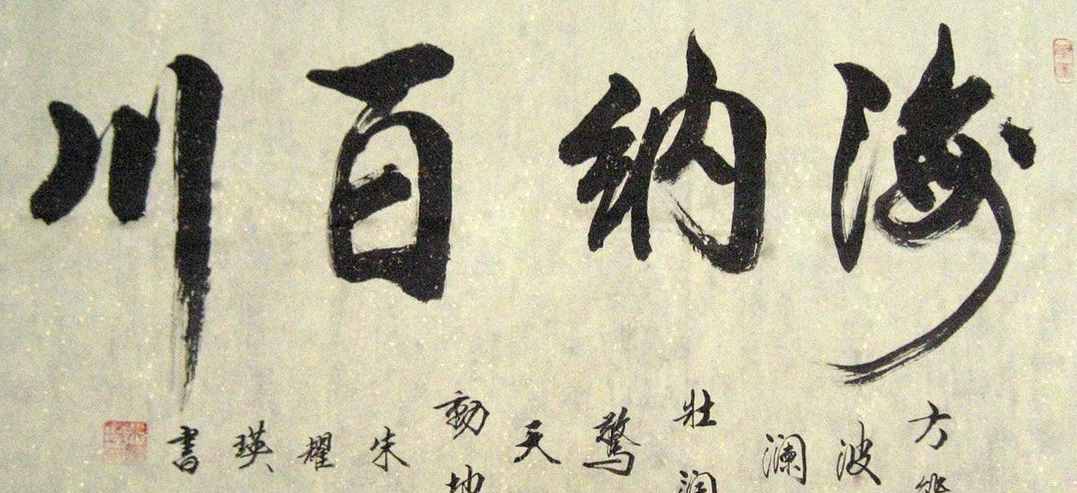 海纳百川
波
澜
壮
驚
天
動
朱
耀
瑛
書